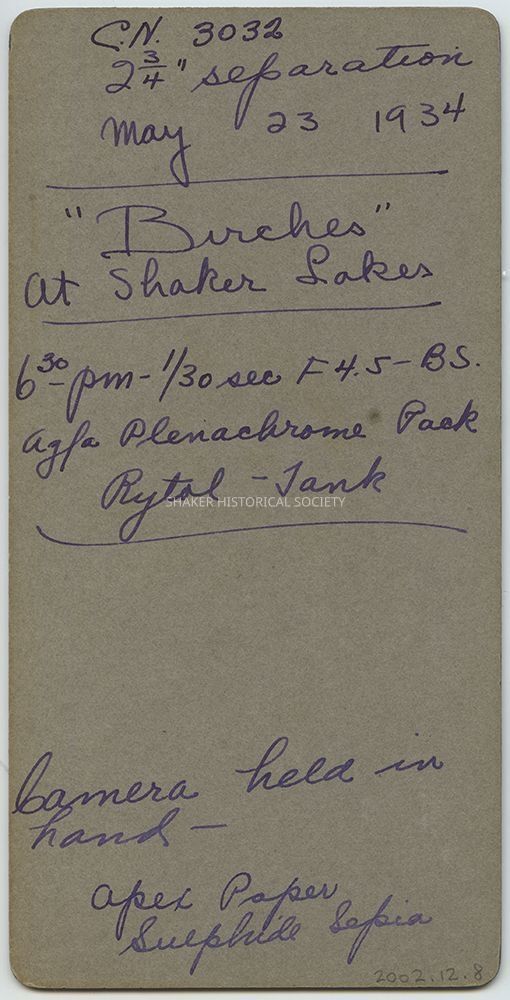 C.N. 3032
2 3/4" separation
May 23 1934
"Birches"
at Shaker Lakes
6 30 pm - 1/30 sec F 4.5 - BS.
Agfa Plenachrome Pack
Rytol - Tank
SHAKER HISTORICAL SOCIETY
Camera held in
hand -
Apex Paper
Sulphide Sepia
2002.12.8